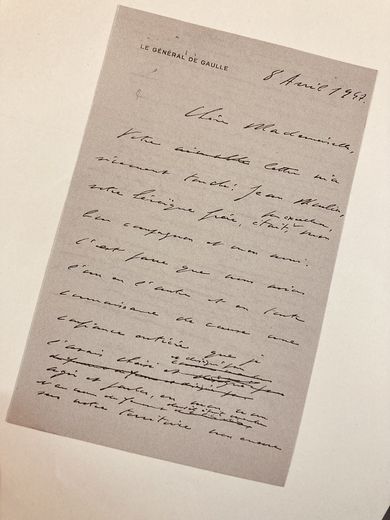 LE GÉNÉRAL DE GAULLE
8 Avril 1947.
Chère Mademoiselle,
Votre aimable lettre m'a
vivement touché: Jean Moulin,
votre héroïque frère, était, par excellence, mon
bon compagnon et mon ami.
C'est parce que nous avions
l'un en l'autre et en toute
connaissance de cause une
confiance entière que je
l'avais choisi et
agir et parler, en mon nom
sur notre territoire non encore